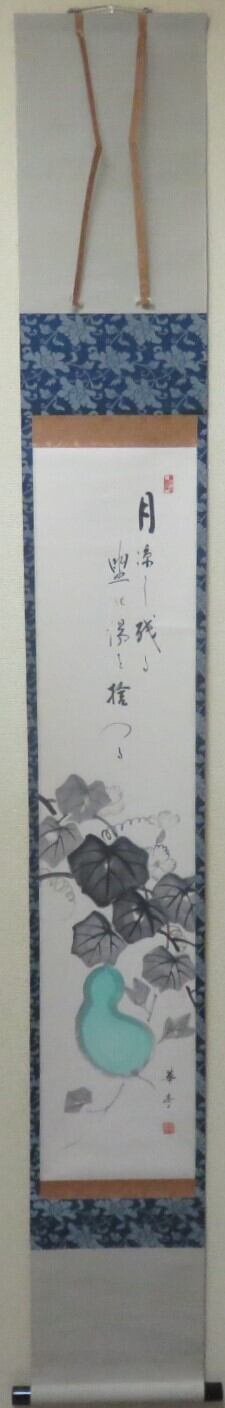 月涼し残る
盥に湯を捨つる